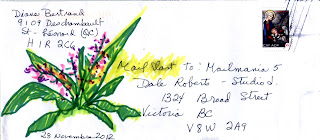 Diane Bertrand
9109 Deschambault
St-Léonard (QC)
H1R 2C6
Mail Slot to: Mailmania 5
Dale Roberts - Studio 2.
1324 Broad Street
Victoria BC
V8W 2A9
23 Novembre 2012